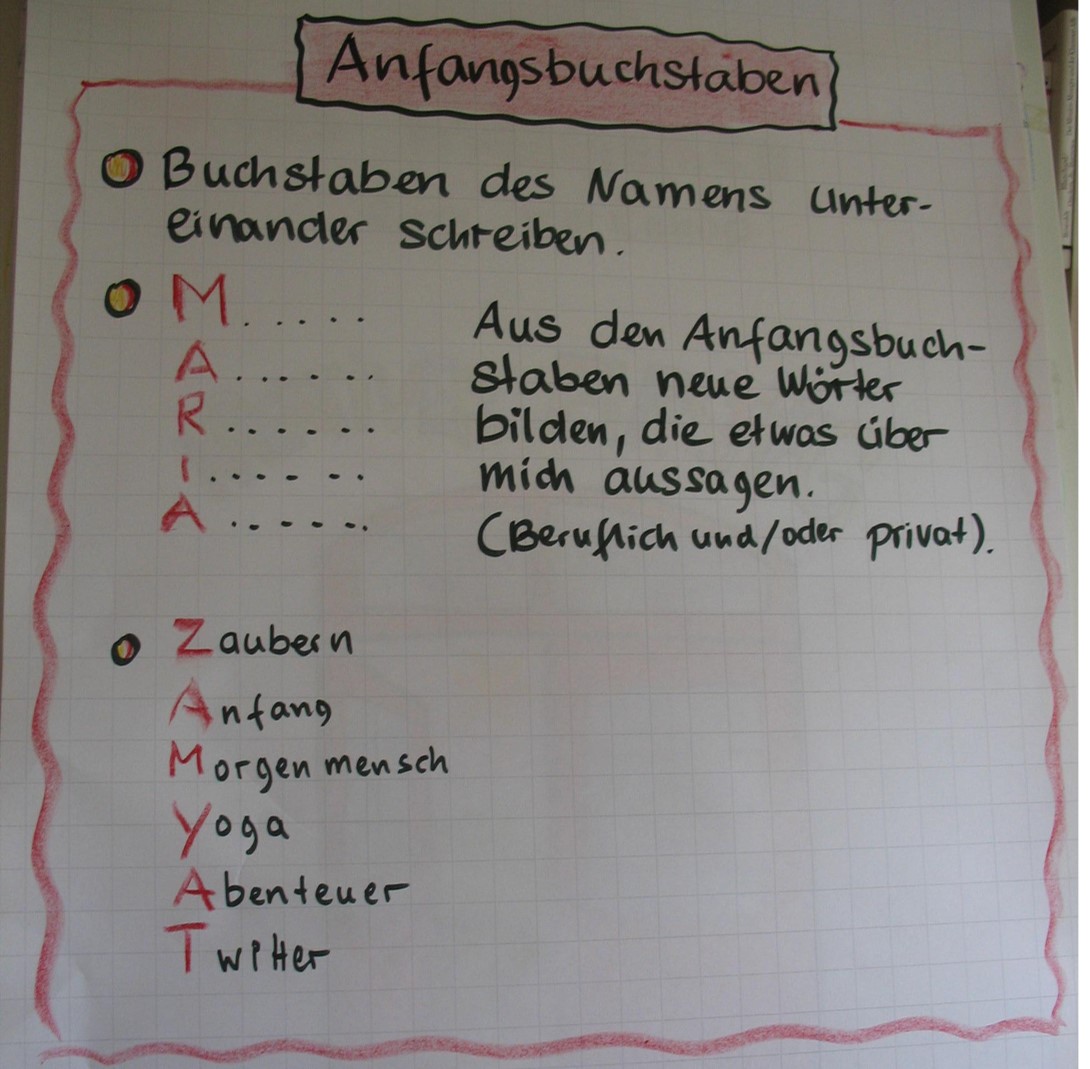 Anfangsbuchstaben
Buchstaben des Namens unter-
einander schreiben.
M.....
A......
R......
I......
A......
Aus den Anfangsbuch-
staben neue Wörter
bilden, die etwas über
mich aussagen.
(Beruflich und/oder privat).
Zaubern
Anfang
Morgenmensch
Yoga
Abenteuer
Twitter